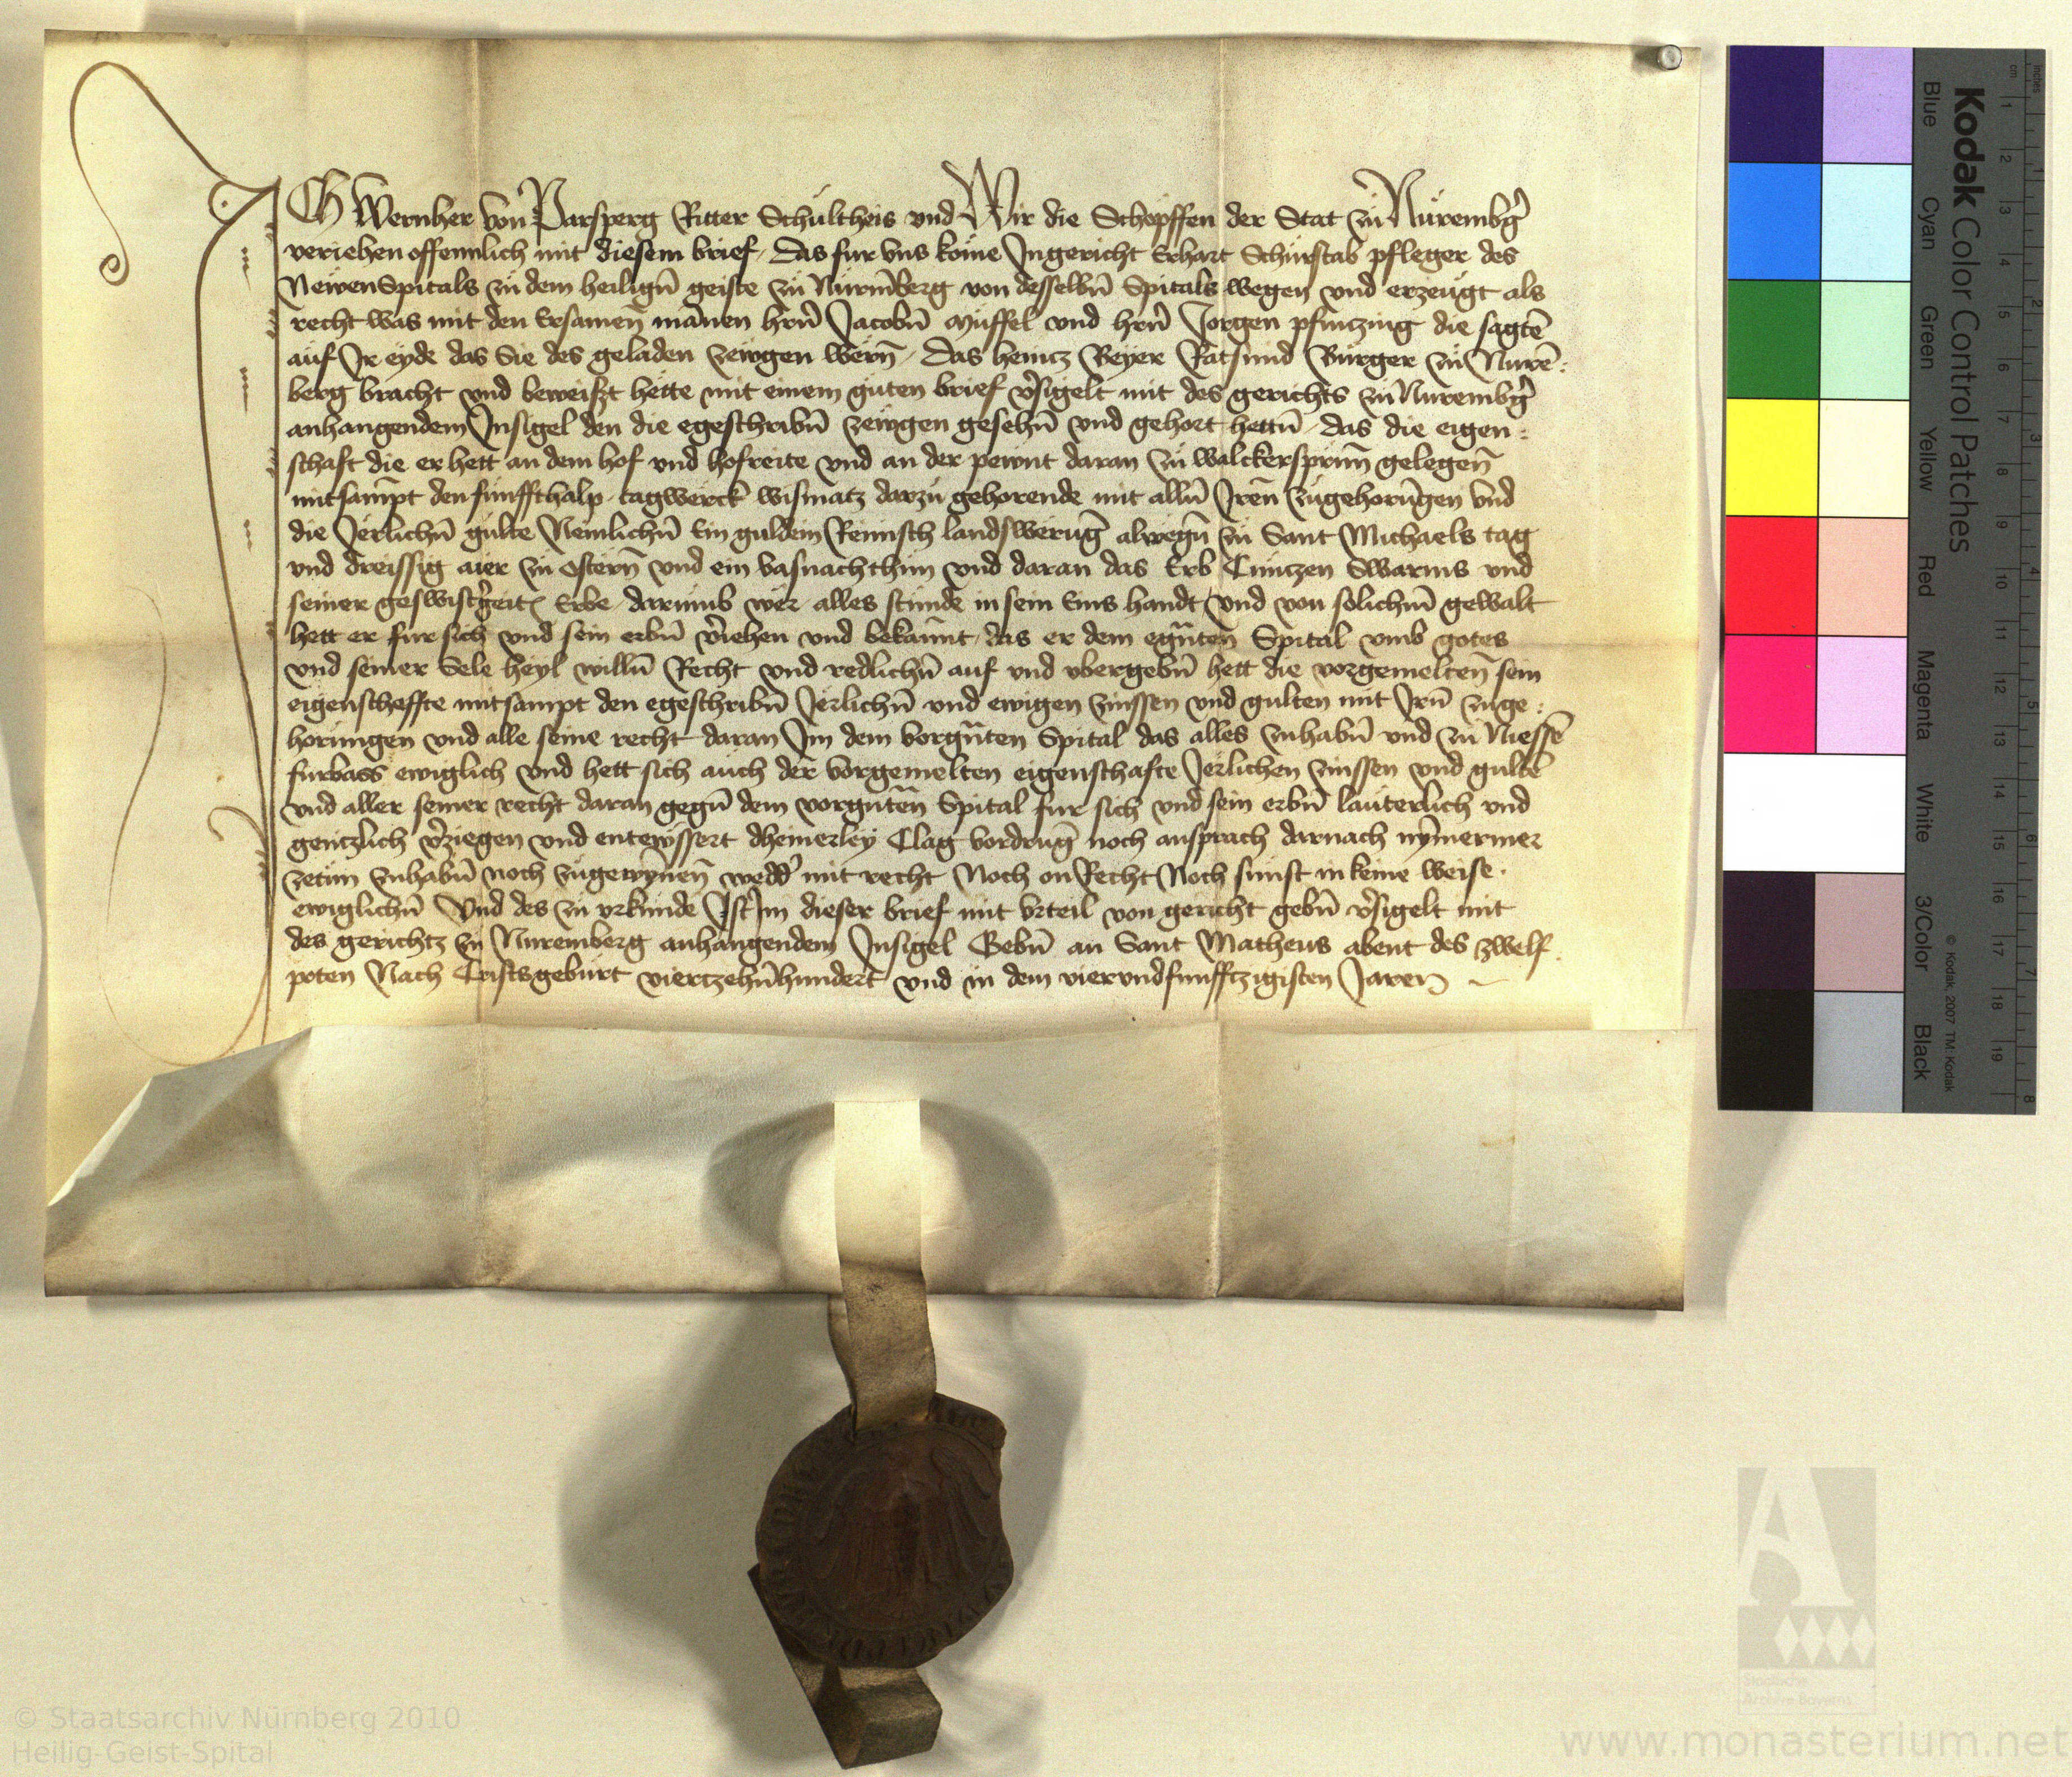 ICh Wernher von Parsperg Ritter Schultheis vnd Wir die Schopffen der Stat zu Nurembg̃
veriehen offennlich mit diesem brief, Das fur vns kome Jngericht Erhart Schürstab pfleger des
Newen Spitals zu dem heiligñ geiste zu Nürm̄berg von desselbñ Spitals wegen vnd erzeugt als
recht was mit den Ersamen̄ mānen hrñ Jacobñ Müffel vnd hrñ Jorgen pfintzing die sagtē
auf Jr eyde das Sie des geladen zewgen wern̄, Das heintz Beyer Ratsmid Burger zu Nurē:
berg bracht vnd beweiszt hette mit einem guten brief v̾sigelt mit des gerichts zu Nurembg̃
anhangendem Jnsigel den die egeschribñ zewgen gesehñ vnd gehort hettñ, das die eigen:
schaft die er hett an dem hof vnd hofreite vnd an der pewnt daran zu walckersprun̄ gelegen̄
mitsampt den funffthalp tagwerck wismatz darzu gehorende mit allñ Jren̄ zugehorūgen vnd
die Jerlichñ gulte Nemlichñ Ein guldein Reinisch landswerūg alwegñ zu Sant Michaels tag
vnd dreissig aier zu ostern̄ vnd ein vasnachthun vnd daran das Erb Cuntzen Swarms vnd
seiner geswistg̾eit Erbe, darumb wer alles stunde in sein Eins handt vnd von solichm̄ gewalt
hett er fur sich vnd sein erbñ v̾iehen vnd bekan̄nt, das er dem egñten Spital vmb gotes
vnd seiner Sele heyl willñ Recht vnd redlichñ auf vnd vbergebñ hett die vorgemelten̄ sein
eigenscheffte mitsampt den egeschribñ Jerlichñ vnd ewigen zinssen vnd gulten mit Jrñ zuge:
horungen vnd alle seine recht daran Jm dem vorgñten Spital das alles zuhabñ vnd zu Niessē
furbass ewiglich vnd hett sich auch der vorgemelten eigenschafte Jerlichen zinssen vnd gultē
vnd aller seiner recht daran gegñ dem vorgñten Spital fur sich vnd sein erbñ lauterlich vnd
gentzlich v̾ziegen vnd entewssert dheinerley Clag vordrūg noch ansprach darnach nym̄ermer
zetun zuhabñ noch zugewynen̄ wedd̾ mit recht Noch on Recht Noch sunst in keine weise.
ewiglichñ Vnd des zu vrkunde Jst Jm dieser brief mit vrteil von gericht gebñ v̾sigelt mit
des gerichtz zu Nuremberg anhangendem Jnsigel Gebñ an Sant Matheus abent des zwelf
poten Nach Cristsgeburt viertzehñhundert vnd in dem viervndfunfftzigisten Jaren
Kodak Color Control Patches
Blue Cyan Green Yellow Red Magenta White 3/Color Black
© Kodak, 2007 TM: Kodak
cm 1 2 3 4 5 6 7 8 9 10 11 12 13 14 15 16 17 18 19
inches 1 2 3 4 5 6 7 8
Staatliche
Archive Bayerns
© Staatsarchiv Nürnberg 2010
Heilig-Geist-Spital
www.monasterium.net